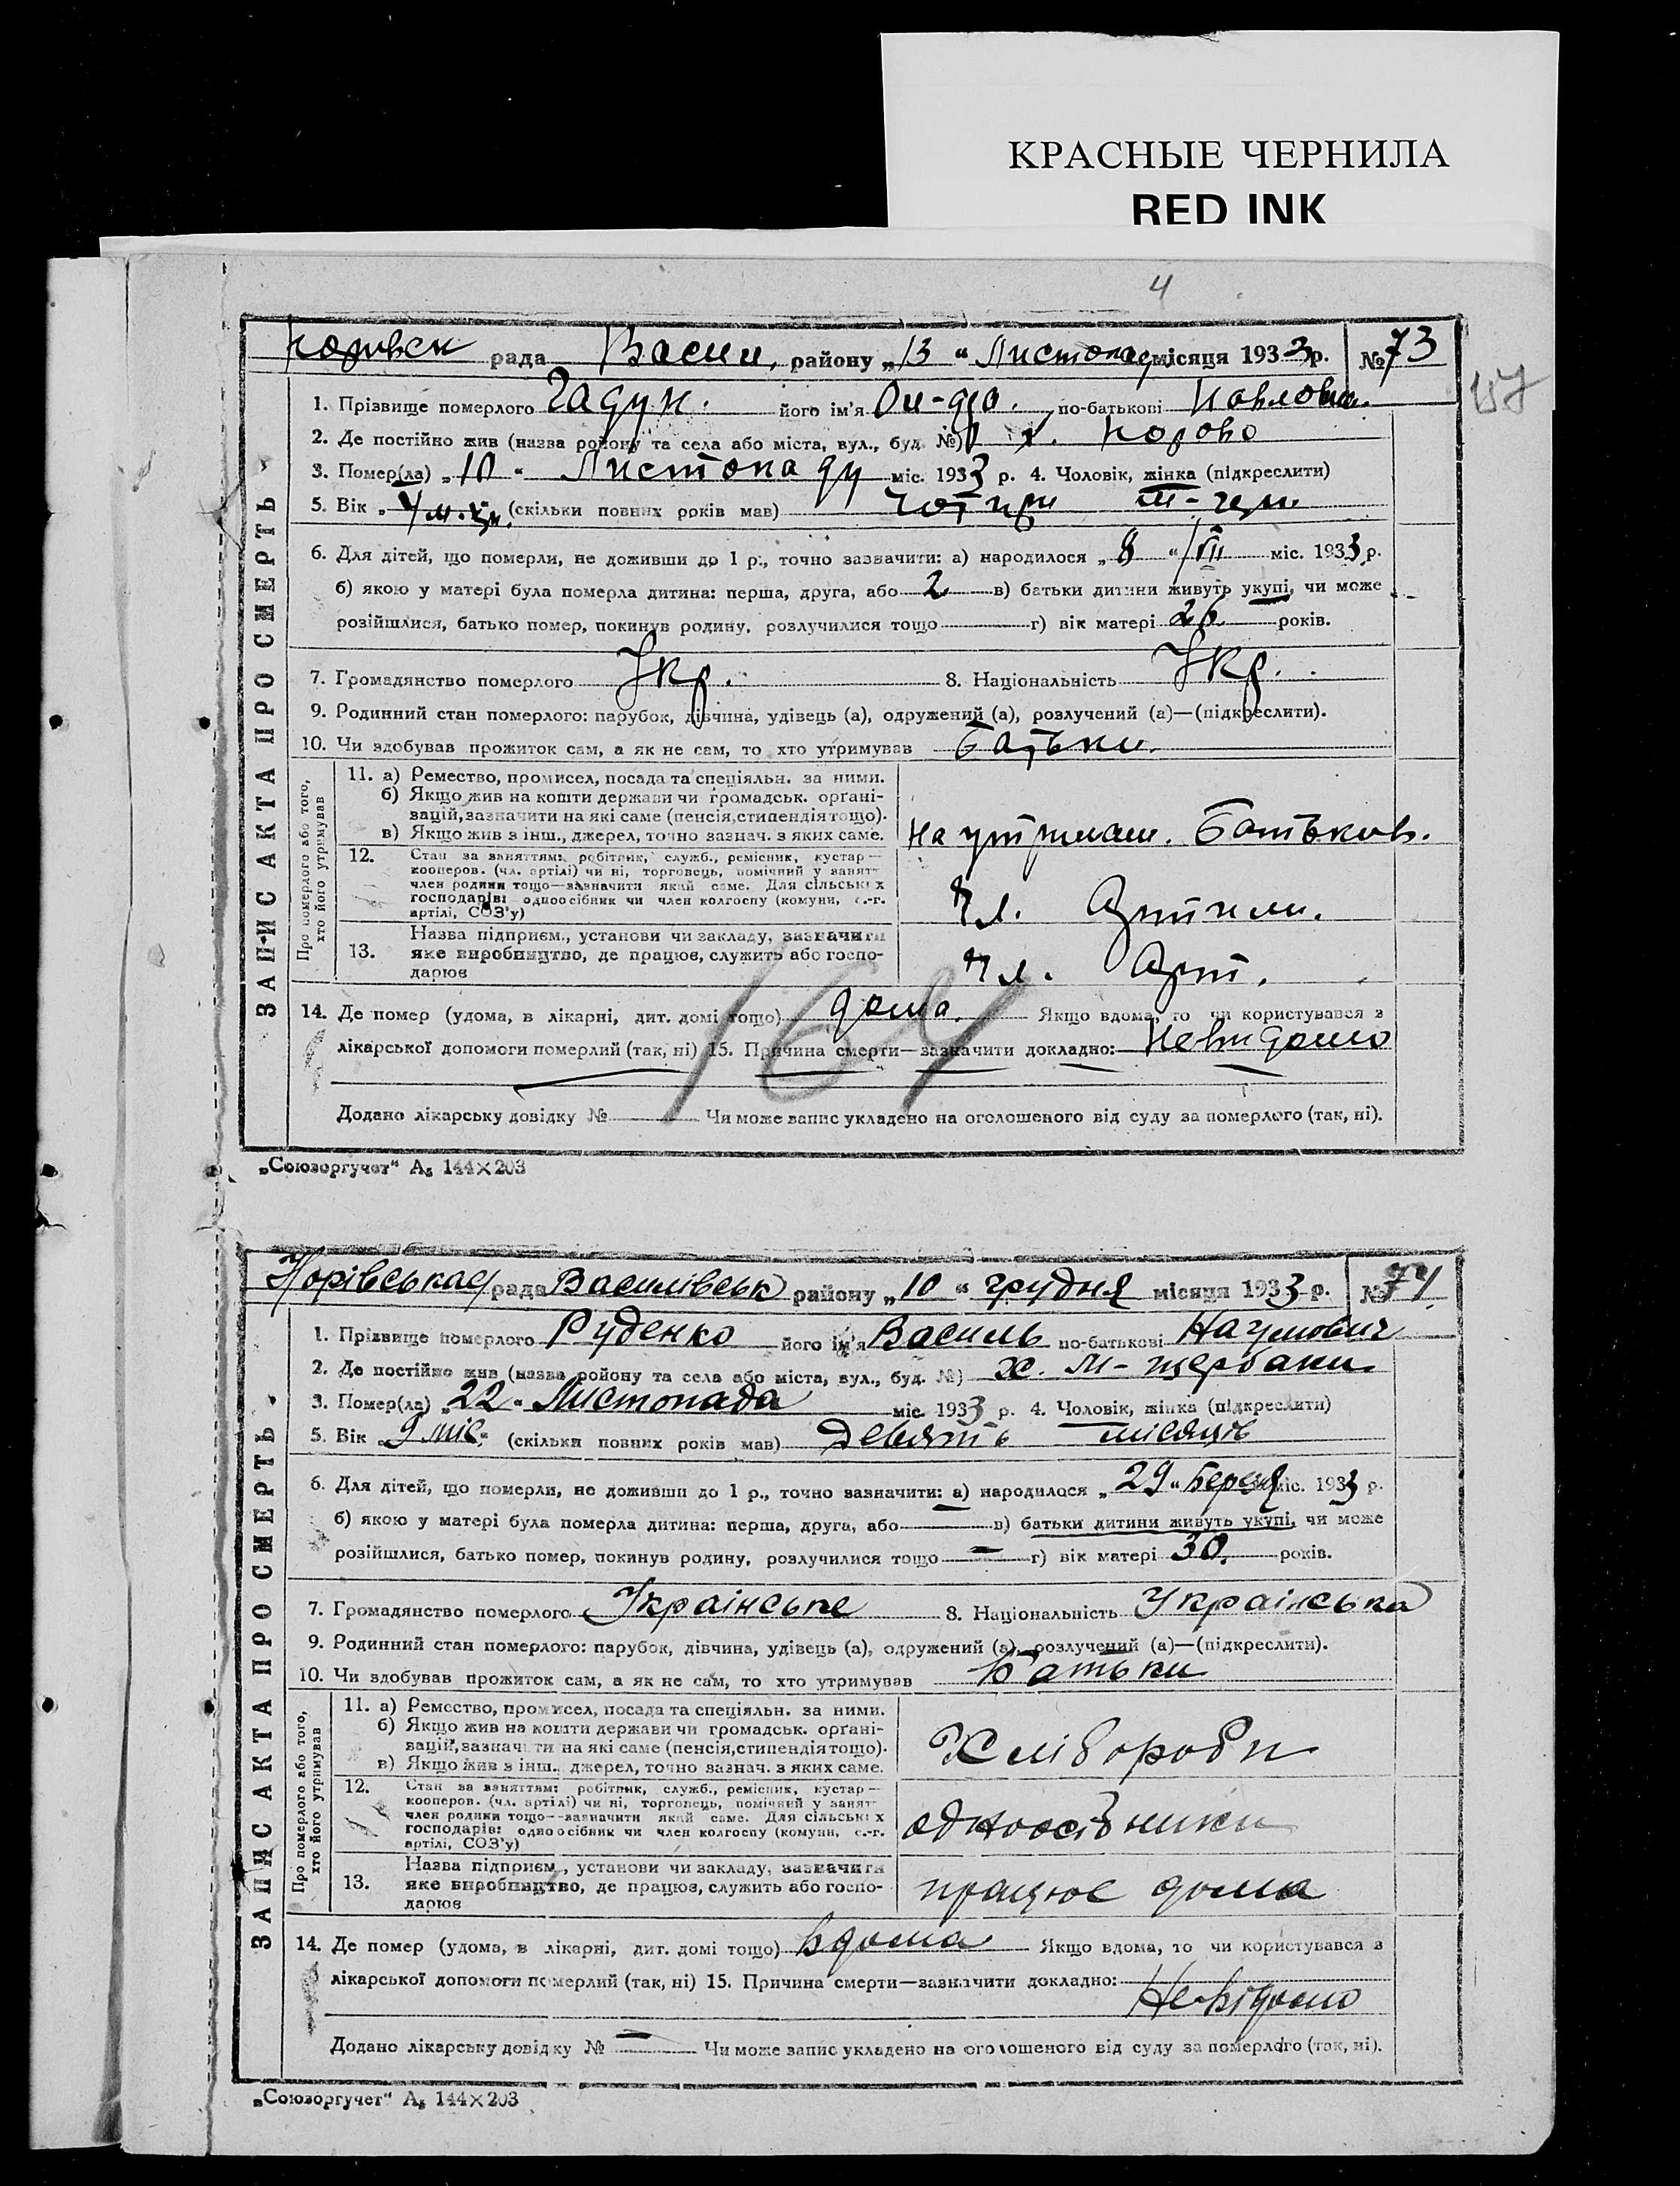 КРАСНЫЕ ЧЕРНИЛА
RED INK
4
рада Васил. району „13“ Листопаду місяця 1933 р. № 73
157
1. Прізвище померлого Гадун. його ім'я по-батькові Павловна.
2. Де постійно жив (назва району та села або міста, вул., буд. №) х. Норово
3. Помер(ла) „10“ Листопаду міс. 1933 р. 4. Чоловік, жінка (підкреслити)
5. Вік „4 м-ци.“ (скільки повних років мав) чотири м-ци.
6. Для дітей, що померли, не доживши до 1 р., точно зазначити: а) народилося „8“ VII міс. 1933 р.
б) якою у матері була померла дитина: перша, друга, або 2 в) батьки дитини живуть укупі, чи може
розійшлися, батько помер, покинув родину, розлучилися тощо г) вік матері 26 років.
7. Громадянство померлого Укр. 8. Національність Укр.
9. Родинний стан померлого: парубок, дівчина, удівець (а), одружений (а), розлучений (а)—(підкреслити).
10. Чи здобував прожиток сам, а як не сам, то хто утримував Батьки.
ЗАПИС АКТА ПРО СМЕРТЬ
Про померлого або того, хто його утримував
11. а) Ремество, промисел, посада та спеціяльн. за ними.
б) Якщо жив на кошти держави чи громадськ. орґані-
зацій, зазначити на які саме (пенсія, стипендія тощо).
в) Якщо жив з інш., джерел, точно зазнач. з яких саме.
на утриман. Батьков.
12. Стан за заняттям: робітник, служб., ремісник, кустар—
кооперов. (чл. артілі) чи ні, торговець, помічний у занят-
член родини тощо—зазначити який саме. Для сільських
господарів: одноосібник чи член колгоспу (комуни, с.-г.
артілі, СОЗ'у)
Чл. Артили.
13. Назва підприєм., установи чи закладу, зазначити
яке виробництво, де працює, служить або госпо-
дарює
Чл. Арт.
164
14. Де помер (удома, в лікарні, дит. домі тощо) дома. Якщо вдома, то чи користувався з
лікарської допомоги померлий (так, ні) 15. Причина смерти—зазначити докладно: Невидомо
Додано лікарську довідку № Чи може запис укладено на оголошеного від суду за померлого (так, ні).
„Союзоргучет“ А₅ 144×203
Норівська рада Василівськ району „10“ грудня місяця 1933 р. № 74
1. Прізвище померлого Руденко його ім'я Василь по-батькові Наумович
2. Де постійно жив (назва району та села або міста, вул., буд. №) х. М-щербаки
3. Помер(ла) „22“ Листопада міс. 1933 р. 4. Чоловік, жінка (підкреслити)
5. Вік „9 міс.“ (скільки повних років мав) Девять місяців
6. Для дітей, що померли, не доживши до 1 р., точно зазначити: а) народилося „29“ Березя міс. 1933 р.
б) якою у матері була померла дитина: перша, друга, або в) батьки дитини живуть укупі, чи може
розійшлися, батько помер, покинув родину, розлучилися тощо — г) вік матері 30. років.
7. Громадянство померлого Українське 8. Національність Українська
9. Родинний стан померлого: парубок, дівчина, удівець (а), одружений (а), розлучений (а)—(підкреслити).
10. Чи здобував прожиток сам, а як не сам, то хто утримував Батьки
ЗАПИС АКТА ПРО СМЕРТЬ
Про померлого або того, хто його утримував
11. а) Ремество, промисел, посада та спеціяльн. за ними.
б) Якщо жив на кошти держави чи громадськ. орґані-
зацій, зазначити на які саме (пенсія, стипендія тощо).
в) Якщо жив з інш., джерел, точно зазнач. з яких саме.
Хліборобн
12. Стан за заняттям: робітник, служб., ремісник, кустар—
кооперов. (чл. артілі) чи ні, торговець, помічний у занят-
член родини тощо—зазначити який саме. Для сільських
господарів: одноосібник чи член колгоспу (комуни, с.-г.
артілі, СОЗ'у)
одноосібники
13. Назва підприєм., установи чи закладу, зазначити
яке виробництво, де працює, служить або госпо-
дарює
працює дома
14. Де помер (удома, в лікарні, дит. домі тощо) вдома Якщо вдома, то чи користувався з
лікарської допомоги померлий (так, ні) 15. Причина смерти—зазначити докладно:
Невідомо
Додано лікарську довідку № — Чи може запис укладено на оголошеного від суду за померлого (так, ні).
„Союзоргучет“ А₅ 144×203